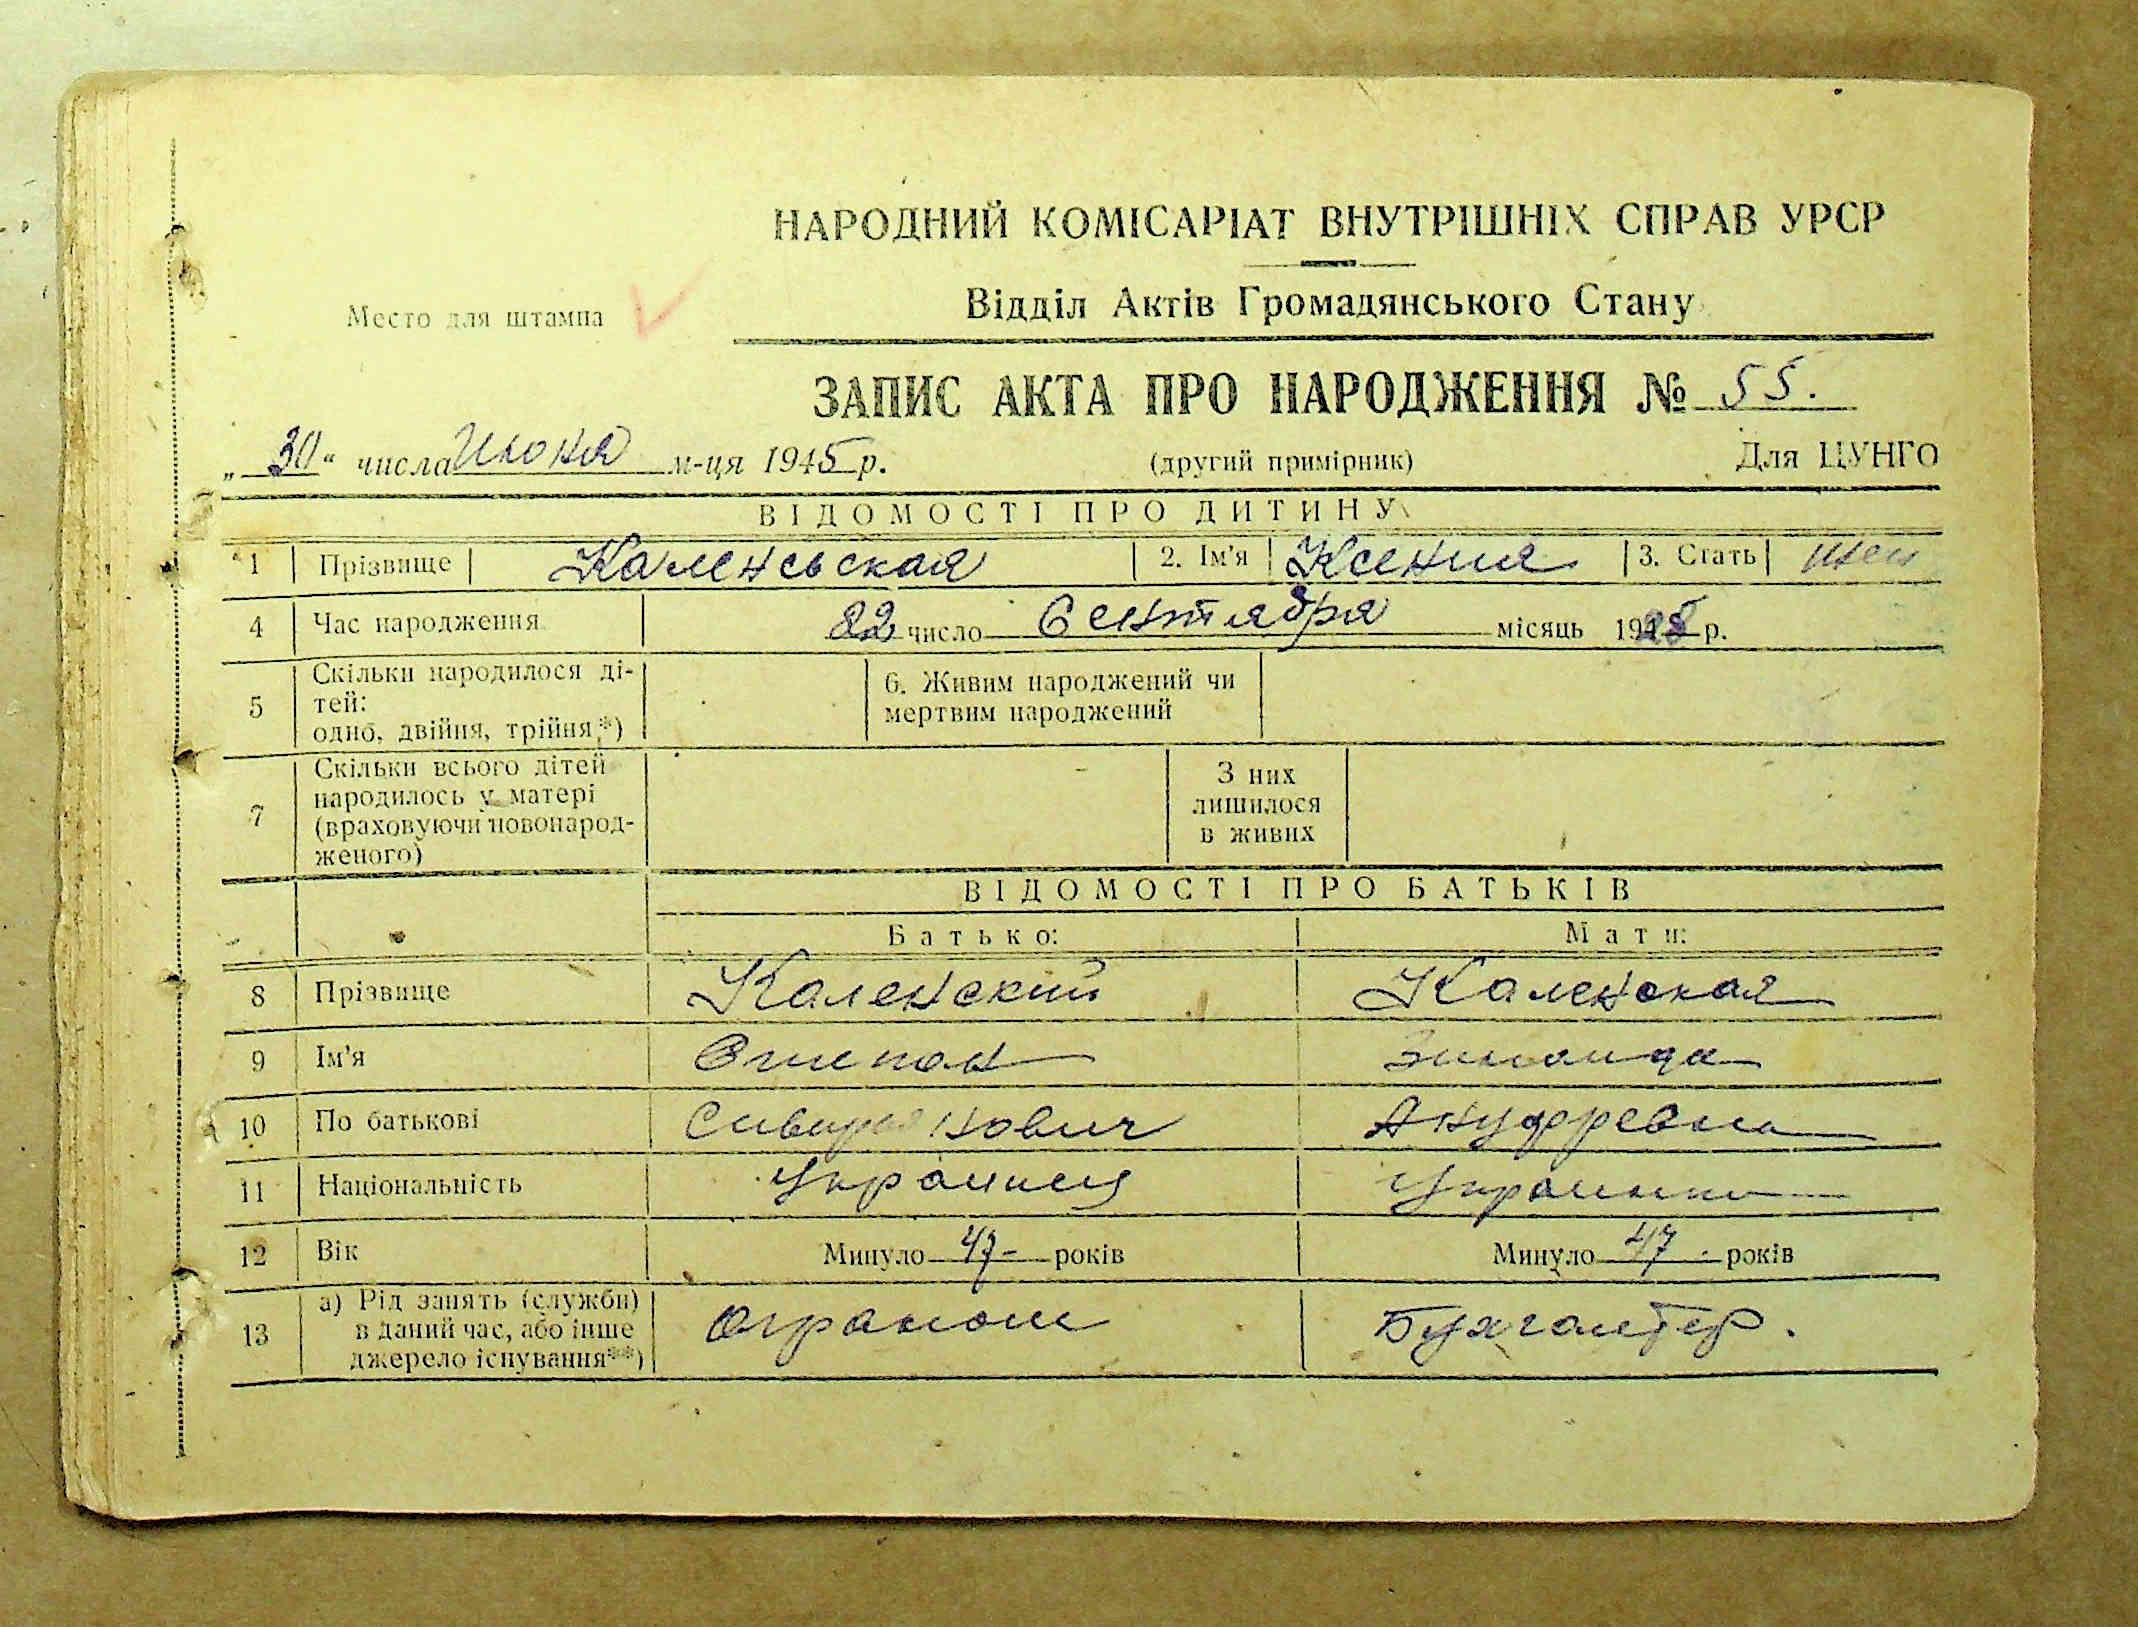 НАРОДНИЙ КОМІСАРІАТ ВНУТРІШНІХ СПРАВ УРСР
Место для штампа
Відділ Актів Громадянського Стану
ЗАПИС АКТА ПРО НАРОДЖЕННЯ № 55.
„30“ числа Июня м-ця 1945 р. (другий примірник) Для ЦУНГО
ВІДОМОСТІ ПРО ДИТИНУ
1 Прізвище Каленьская 2. Ім'я Ксения 3. Стать жен
4 Час народження 22 число Сентября місяць 19 р.
5 Скільки народилося ді-
тей:
одно, двійня, трійня*)
6. Живим народжений чи
мертвим народжений
7 Скільки всього дітей
народилось у матері
(враховуючи новонарод-
женого)
З них
лишилося
в живих
ВІДОМОСТІ ПРО БАТЬКІВ
Батько: Мати:
8 Прізвище Каленский Каленская
9 Ім'я Зинаида
10 По батькові Ануфревна
11 Національність Украинец Украинка
12 Вік Минуло 47 років Минуло 47 років
13 а) Рід занять (служби)
в даний час, або інше
джерело існування**)
Аграном Бухгалтер.